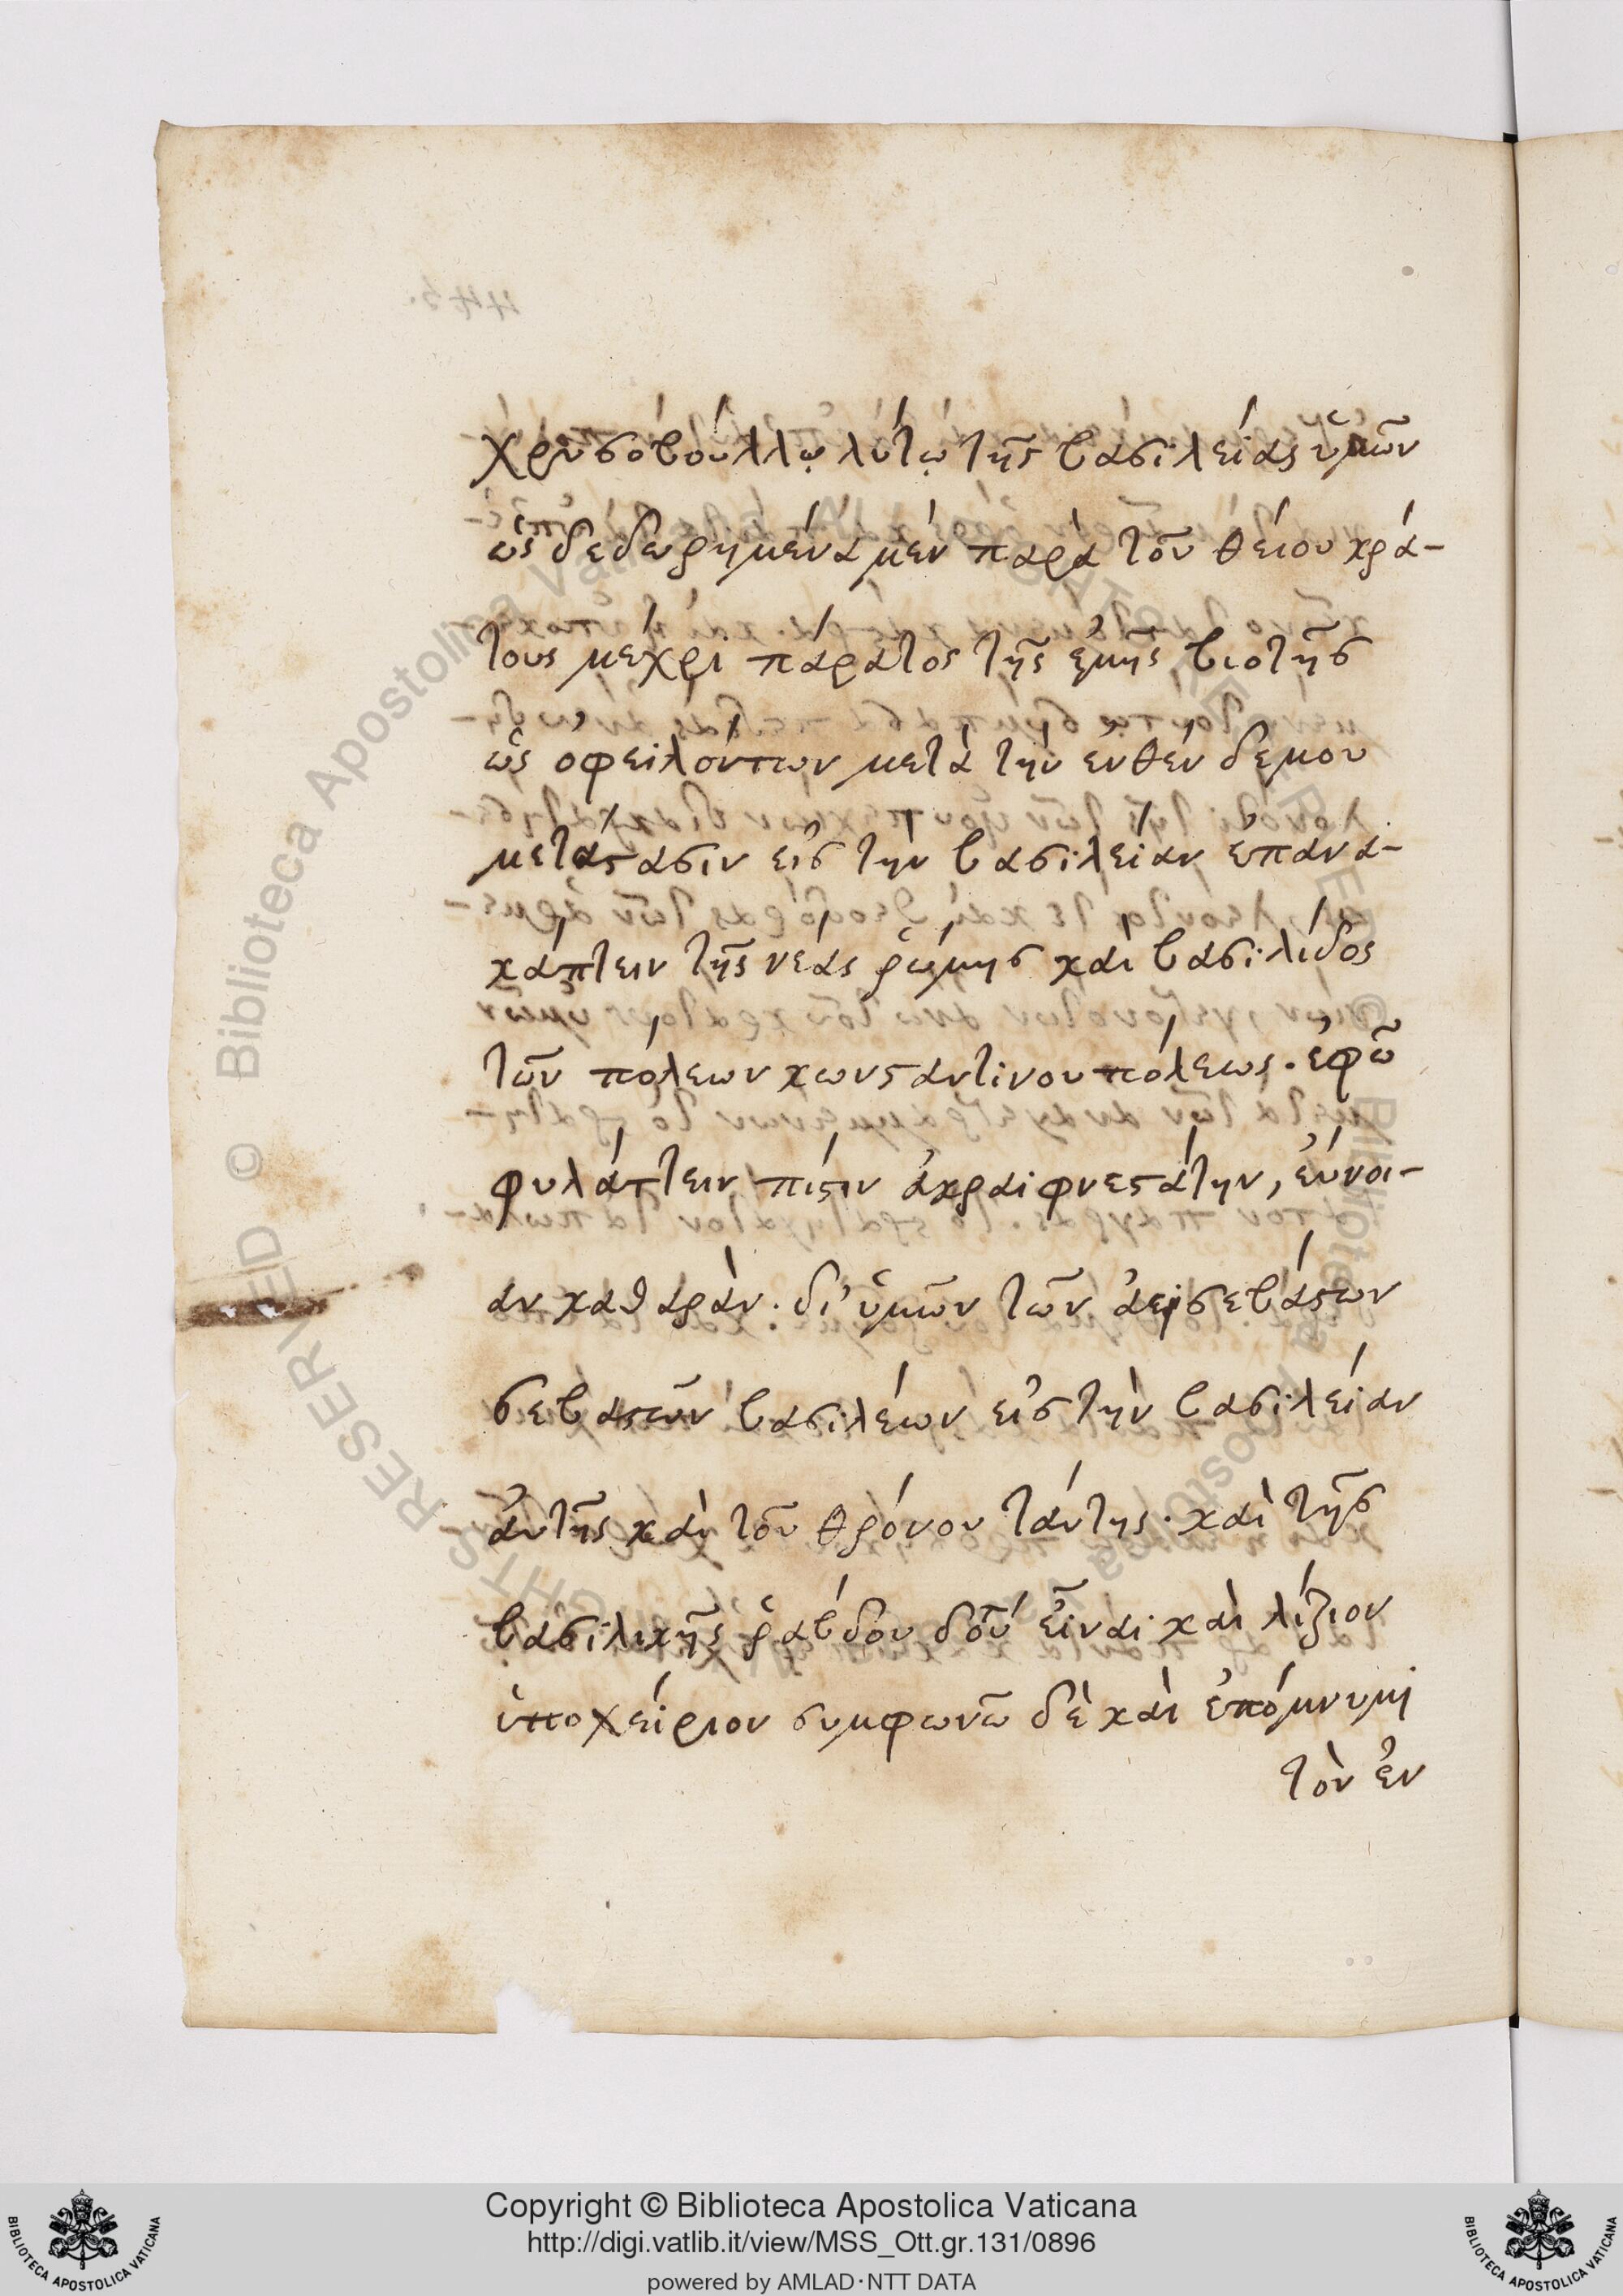 χρυσοβούλλῳ λύτῳ τῆς βασιλείας ὑμῶν
ὡς δεδωρημένα μὲν παρὰ τοῦ θείου κρά-
τους μέχρι πάρατος τῆς ἐμῆς βιοτῆς
ὡς ὀφειλόντων μετὰ τὴν ἐνθέν δέ μου
μετάστασιν εἰς τὴν βασιλείαν ἐπανα-
κάπτειν τῆς νέας ῥώμης καὶ βασιλίδος
τῶν πόλεων κωνσταντινουπόλεως. ἐφῶ
φυλάττειν πίστιν ἀκραιφνεστάτην, εὔνοι-
αν καθαράν. δι' ὑμῶν τῶν ἀεισεβάστων
σεβαστῶν βασιλέων εἰς τὴν βασιλείαν
αὐτῆς καὶ τοῦ θρόνου ταύτης. καὶ τῆς
βασιλικῆς ῥάβδου δοῦ εἶναι καὶ λίζιον
ὑποχείριον συμφωνῶ δὲ καὶ ἐπόμνυμι
τὸν ἐν
Copyright © Biblioteca Apostolica Vaticana
http://digi.vatlib.it/view/MSS_Ott.gr.131/0896
powered by AMLAD·NTT DATA
BIBLIOTECA APOSTOLICA VATICANA
BIBLIOTECA APOSTOLICA VATICANA